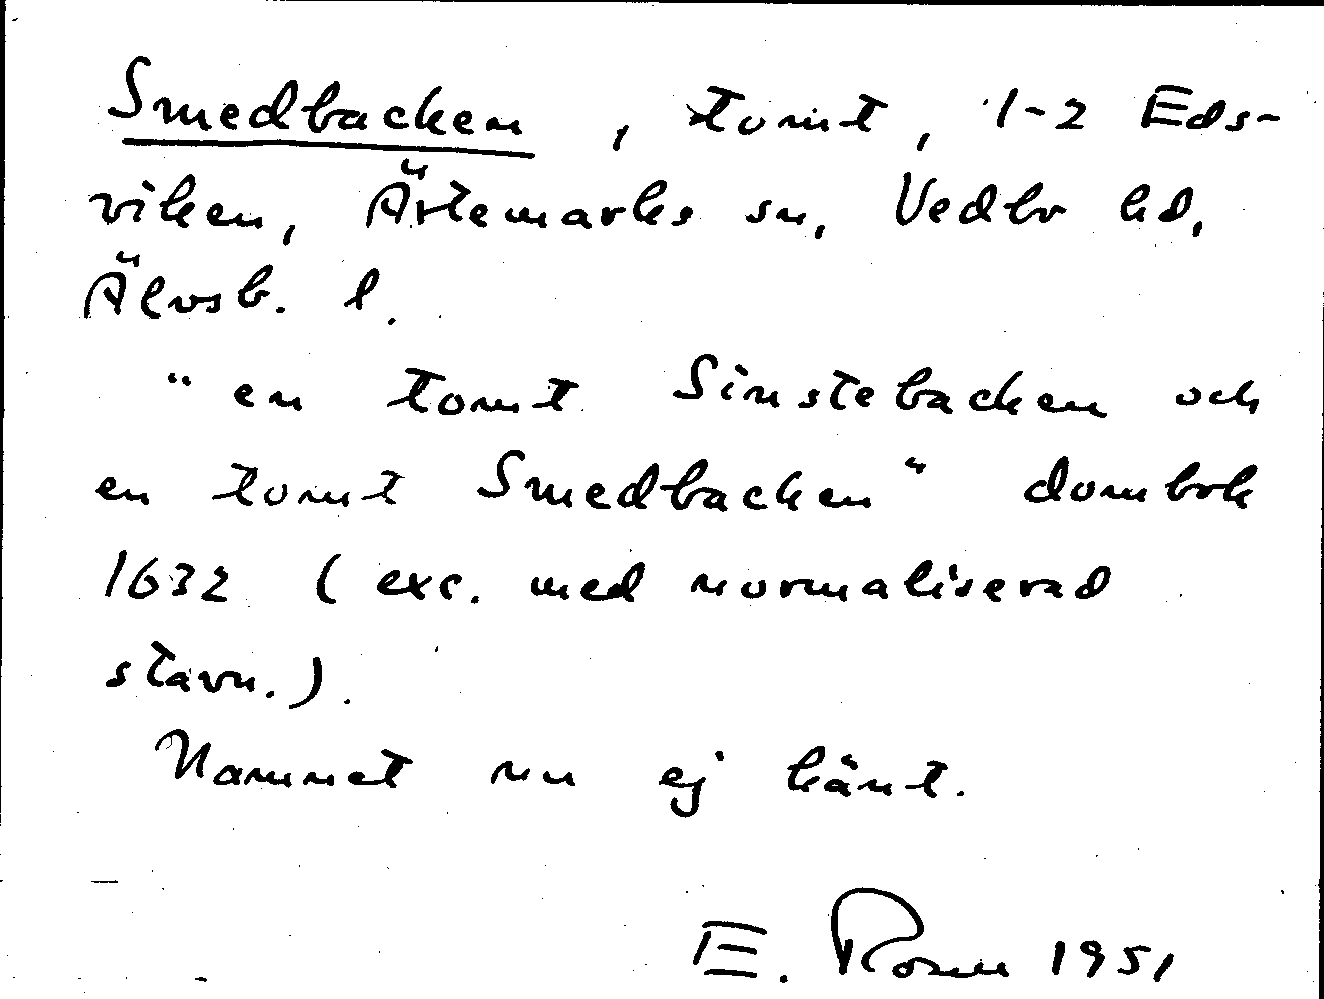 Smedbacken, tomt, 1-2 Eds-
viken, Ärtemarks sn, Vedbo hd,
Älvsb. l.
"en tomt Sinstebacken och
en tomt Smedbacken" dombok
1632 (exc. med normaliserad
stavn.).
Namnet nu ej känt.
E. Rosen 1951